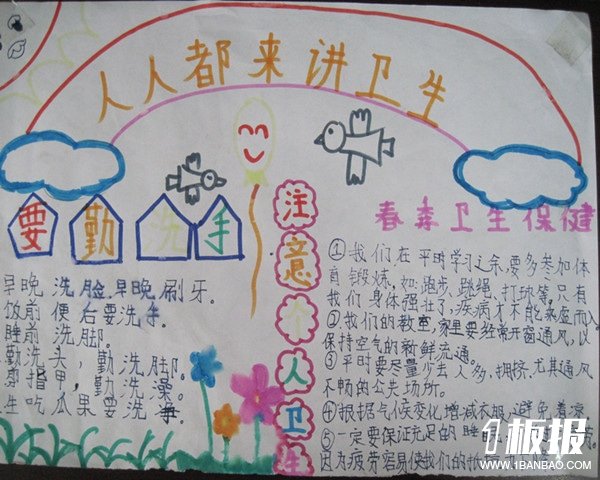 人人都来讲卫生
要勤洗手
早晚洗脸早晚刷牙。
饭前便后要洗手
睡前洗脚。
勤洗头,勤洗脚。
剪指甲,勤洗澡。
生吃瓜果要洗净
注意个人卫生
春季卫生保健
①我们在平时学习之余,要多参加体
育锻炼,如:跑步、跳绳、打球等,只有
我们身体强壮了,疾病才不能乘虚而入
②我们的教室,家里要经常开窗通风,以
保持空气的新鲜流通。
③平时要尽量少去人多、拥挤、尤其通风
不畅的公共场所。
④根据气候变化,增减衣服,避免着凉。
⑤一定要保证充足的睡眠
因为疲劳容易使我们的
1板报
WWW.1BANBAO.COM